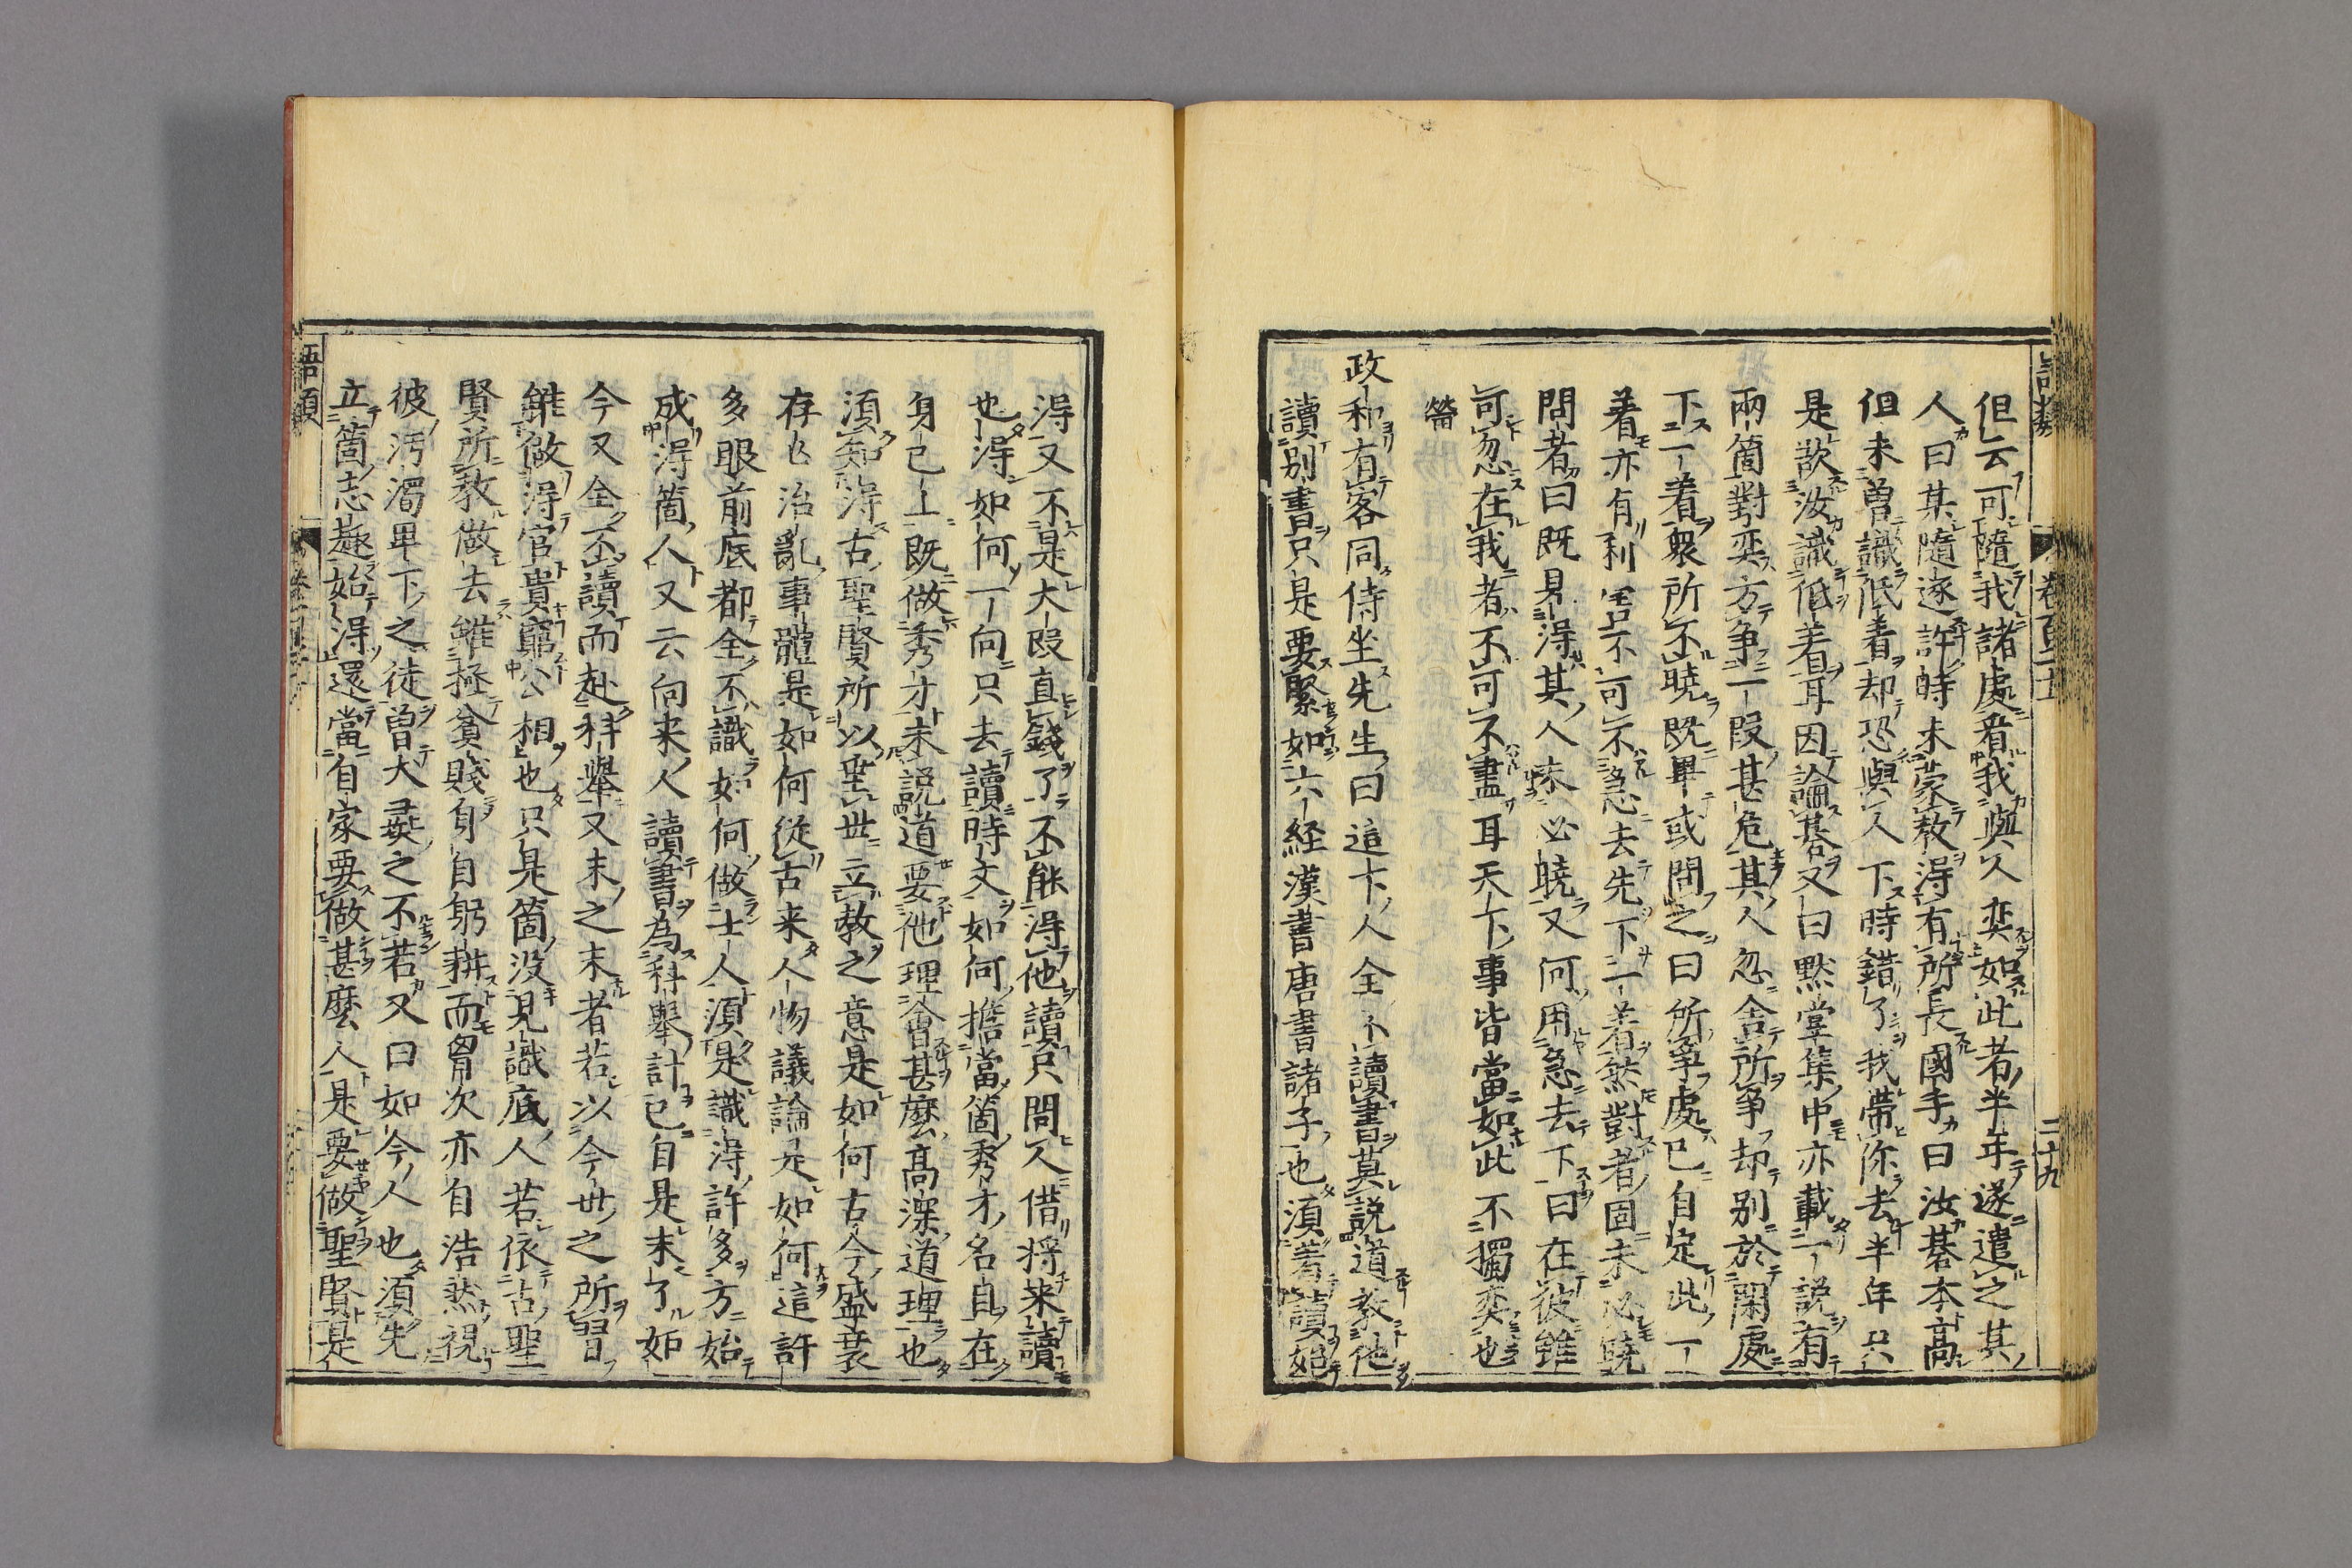 語類 卷百二十一 二十九
但云可隨我諸處看我與人奕如此者半年遂遣之其
人曰某隨逐許時未蒙教得有所長國手曰汝碁本高
但未曽識低着却恐與人下時錯了我帶你去半年只
是欲汝識低着耳因論碁又曰黙堂集中亦載一説有
兩箇對奕方争一段甚危其人忽舎所争却別於閑處
下一着衆所不曉既畢或問之曰所爭處已自定此一
着亦有利害不可不急去先下一着然對者固未必曉
問者曰既見得其人未必曉又何用急去下曰在彼雖
可忽在我者不可不盡耳天下事皆當如此不獨奕也
㽦
政和有客同侍坐先生曰這下人全不讀書莫説道教他
讀別書只是要緊如六経漢書唐書諸子也須着讀始
得又不是大段直錢了不能得他讀只問人借将来讀
也得如何一向只去讀時文如何擔當箇秀才名自在
身己上既做秀才未説道要他理會甚麽高深道理也
須知得古聖賢所以垂世立教之意是如何古今盛衰
存亡治亂事體是如何從古来人物議論是如何這許
多眼前底都全不識如何做士人須是識得許多方始
成得箇人又云向来人讀書為科舉計已自是末了如
今又全不讀而赴科舉又末之末者若以今世之所習
雖做得官貴窮公相也只是箇没見識底人若依古聖
賢所教做去雖極貧賤身自躬耕而胷次亦自浩然視
彼汚濁卑下之徒曽犬彘之不若又曰如今人也須先
立箇志趣始得還當自家要做甚麽人是要做聖賢是
語類